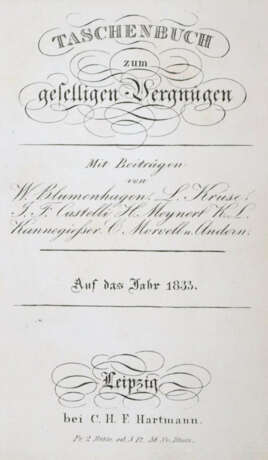 TASCHENBUCH
zum
geselligen Vergnügen
Mit Beiträgen
von
W. Blumenhagen, L. Kruse,
I. F. Castelli, H. Meynert, K. L.
Kannegießer, C. Morvell u. Andern.
Auf das Jahr 1833.
Leipzig
bei C. H. F. Hartmann.
Pr. 2 Rthlr. od. 3 Fl. 36 Xr. Rhein.